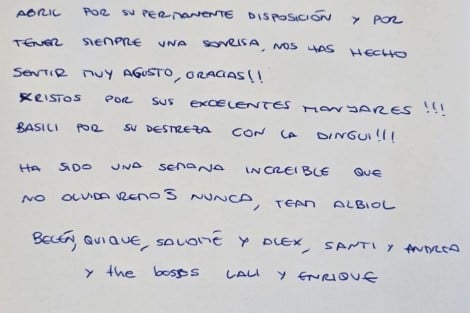 ABRIL POR SU PERMANENTE DISPOSICIÓN Y POR
TENER SIEMPRE UNA SONRISA, NOS HAS HECHO
SENTIR MUY AGUSTO, GRACIAS!!
KRISTOS POR SUS EXCELENTES MANJARES!!!
BASILI POR SU DESTREZA CON LA DINGUI!!!
HA SIDO UNA SEMANA INCREIBLE QUE
NO OLVIDAREMOS NUNCA, TEAM ALBIOL
BELÉN, QUIQUE, SALOMÉ Y ALEX, SANTI Y ANDREA
Y the bosses LALI Y ENRIQUE